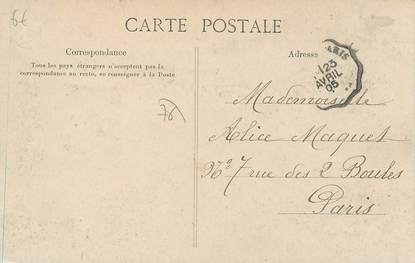 6€
CARTE POSTALE
Correspondance
Tous les pays étrangers n'acceptent pas la
correspondance au recto, se renseigner à la Poste
78
Adresse
PARIS
23
AVRIL
05
Mademoiselle
Alice Maquet
No 7 rue des 2 Boules
Paris